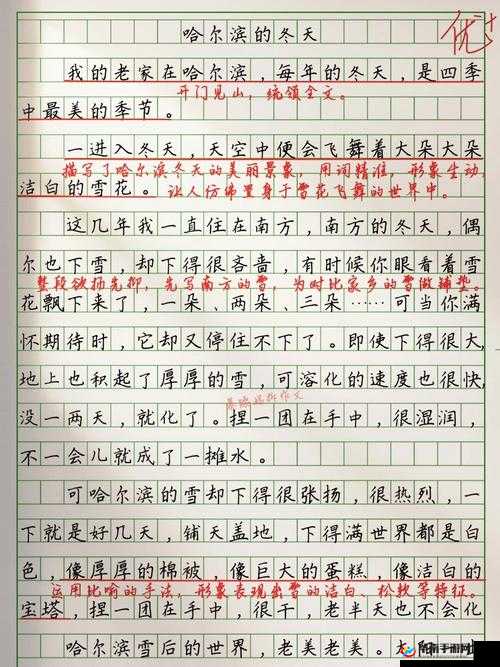 哈尔滨的冬天
优+
我的老家在哈尔滨，每年的冬天，是四季
开门见山，统领全文。
中最美的季节。
一进入冬天，天空中便会飞舞着大朵大朵
描写了哈尔滨冬天的美丽景象，用词精准，形象生动，
洁白的雪花。
让人仿佛置身于雪花飞舞的世界中。
这几年我一直住在南方，南方的冬天，偶
尔也下雪，却下得很吝啬，有时候你眼看着雪
整段欲扬先抑，先写南方的雪，为对比家乡的雪做铺垫。
花飘下来了，一朵、两朵、三朵……可当你满
怀期待时，它却又停住不下了。即使下得很大，
地上也积起了厚厚的雪，可溶化的速度也很快，
没一两天，就化了。捏一团在手中，很湿润，
不一会儿就成了一摊水。
可哈尔滨的雪却下得很张扬，很热烈，一
下就是好几天，铺天盖地，下得满世界都是白
色，像厚厚的棉被，像巨大的蛋糕，像洁白的
运用比喻的手法，形象表现出雪的洁白、松软等特征。
宝塔，捏一团在手中，很干，老半天也不会化
哈尔滨雪后的世界，老美老美。